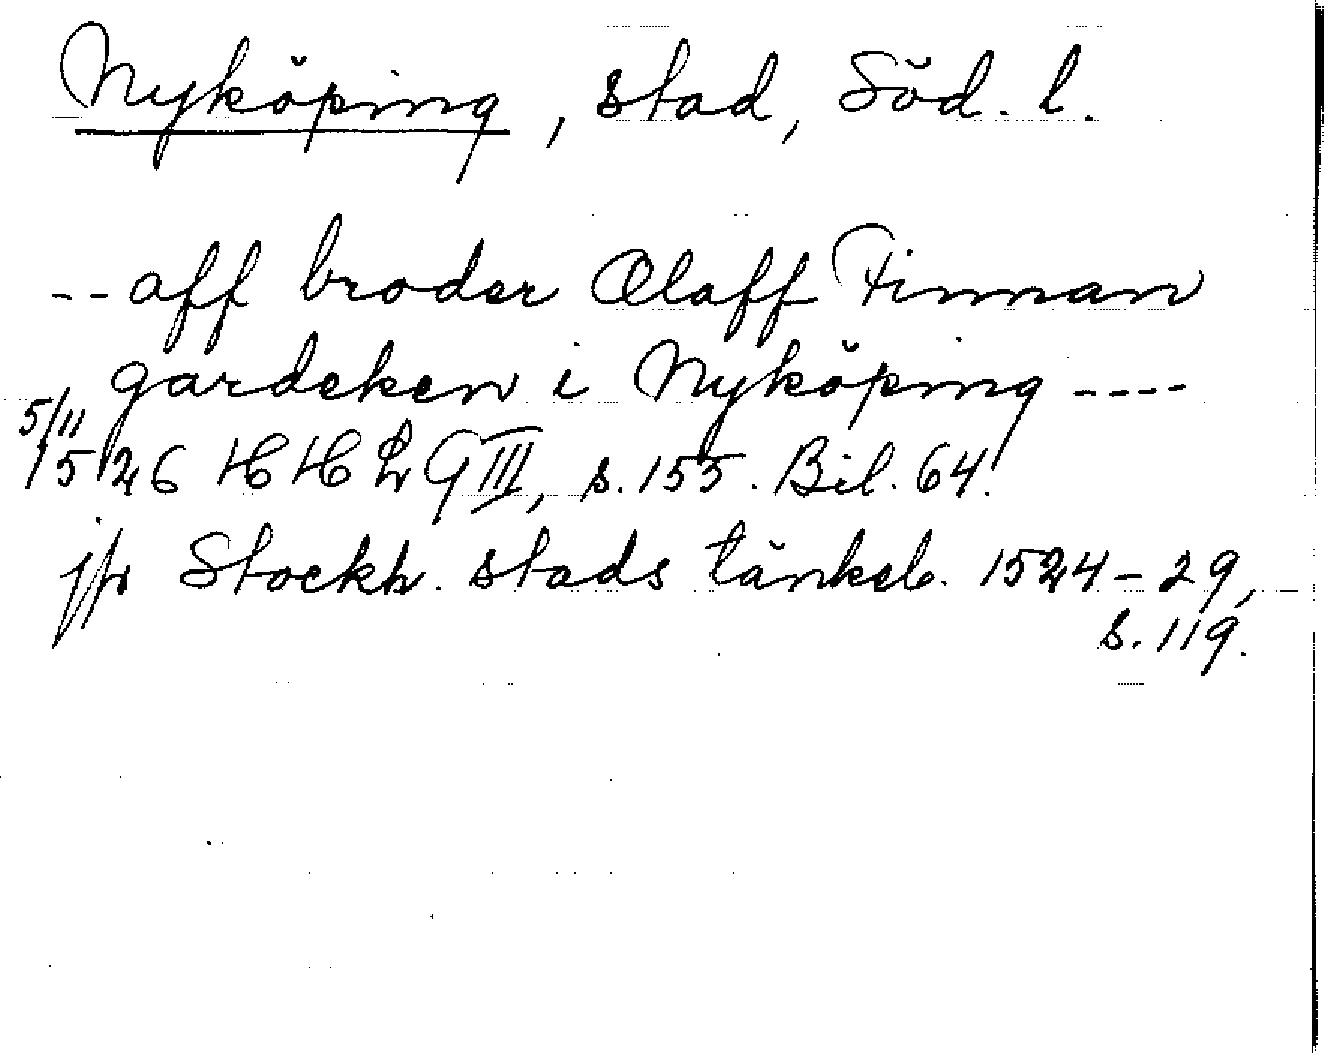 Nyköping, stad, Söd. l.
-- aff broder Olaff Finnan
gardeken i Nyköping ----
5/11
1526 HHL G III, s. 155. Bil. 64.
jfr Stockh. stads tänkeb. 1524-29,
s. 119.